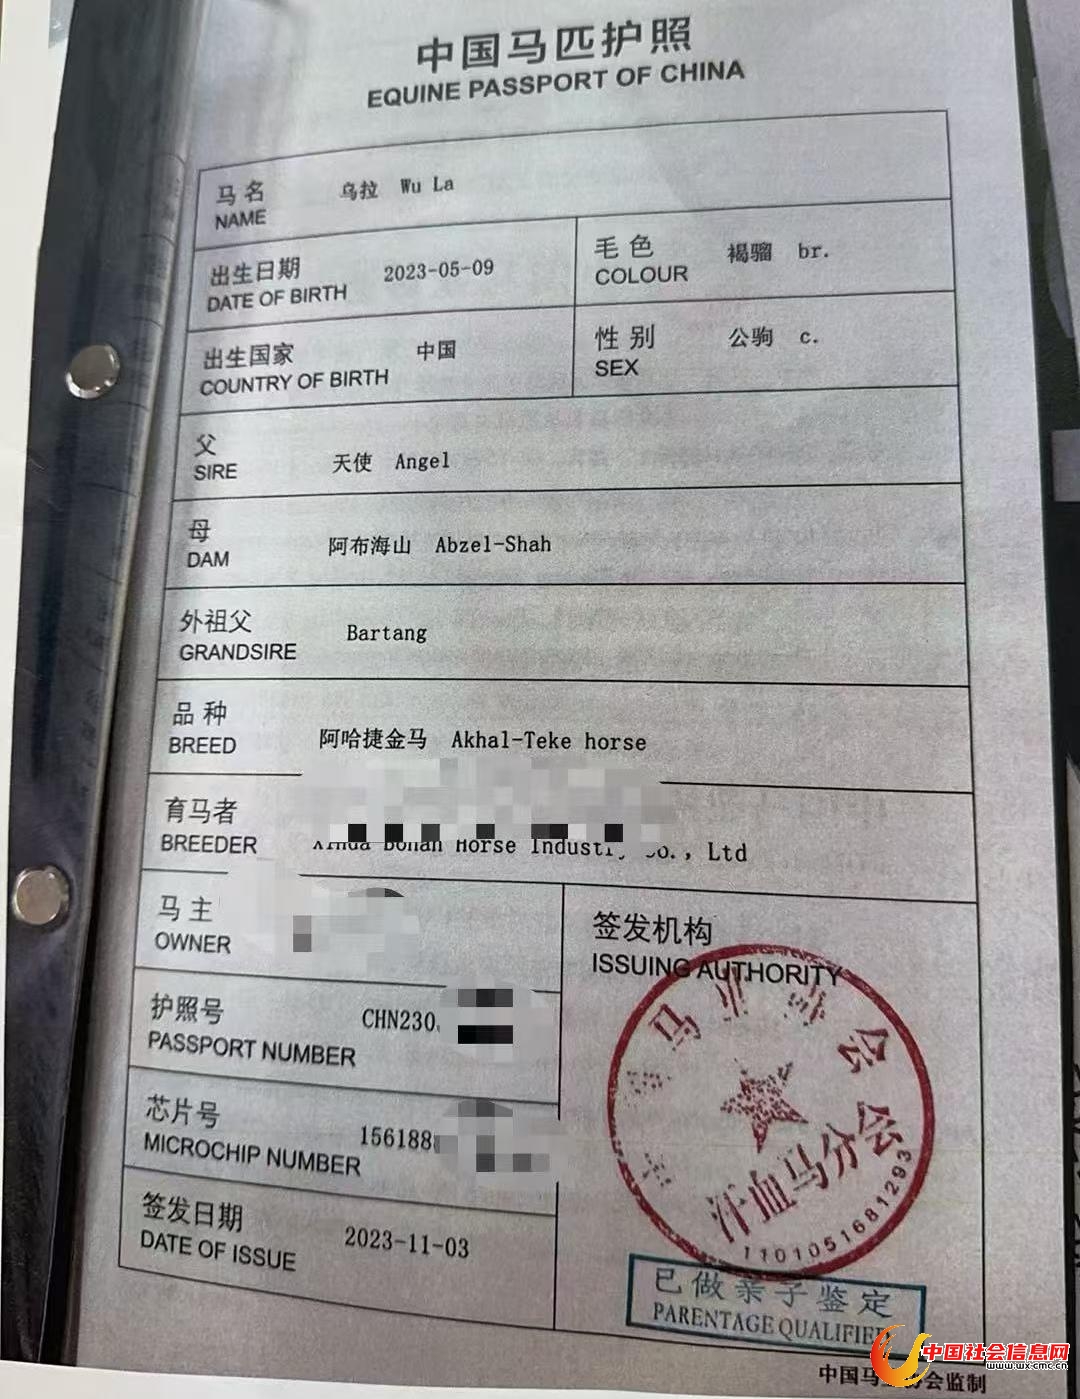 中国马匹护照
EQUINE PASSPORT OF CHINA
马名 乌拉 Wu La
NAME
出生日期 2023-05-09
DATE OF BIRTH
毛色 褐骝 br.
COLOUR
出生国家 中国
COUNTRY OF BIRTH
性别 公驹 c.
SEX
父 天使 Angel
SIRE
母 阿布海山 Abzel-Shah
DAM
外祖父 Bartang
GRANDSIRE
品种 阿哈捷金马 Akhal-Teke horse
BREED
育马者
BREEDER Horse Industry Co., Ltd
马主
OWNER
护照号 CHN230
PASSPORT NUMBER
芯片号 156188
MICROCHIP NUMBER
签发日期 2023-11-03
DATE OF ISSUE
签发机构
ISSUING AUTHORITY
马业协会
汗血马分会
1101051681293
已做亲子鉴定
PARENTAGE QUALIFIED
中国马业协会监制
中国社会信息网
www.wx.cmc.cn